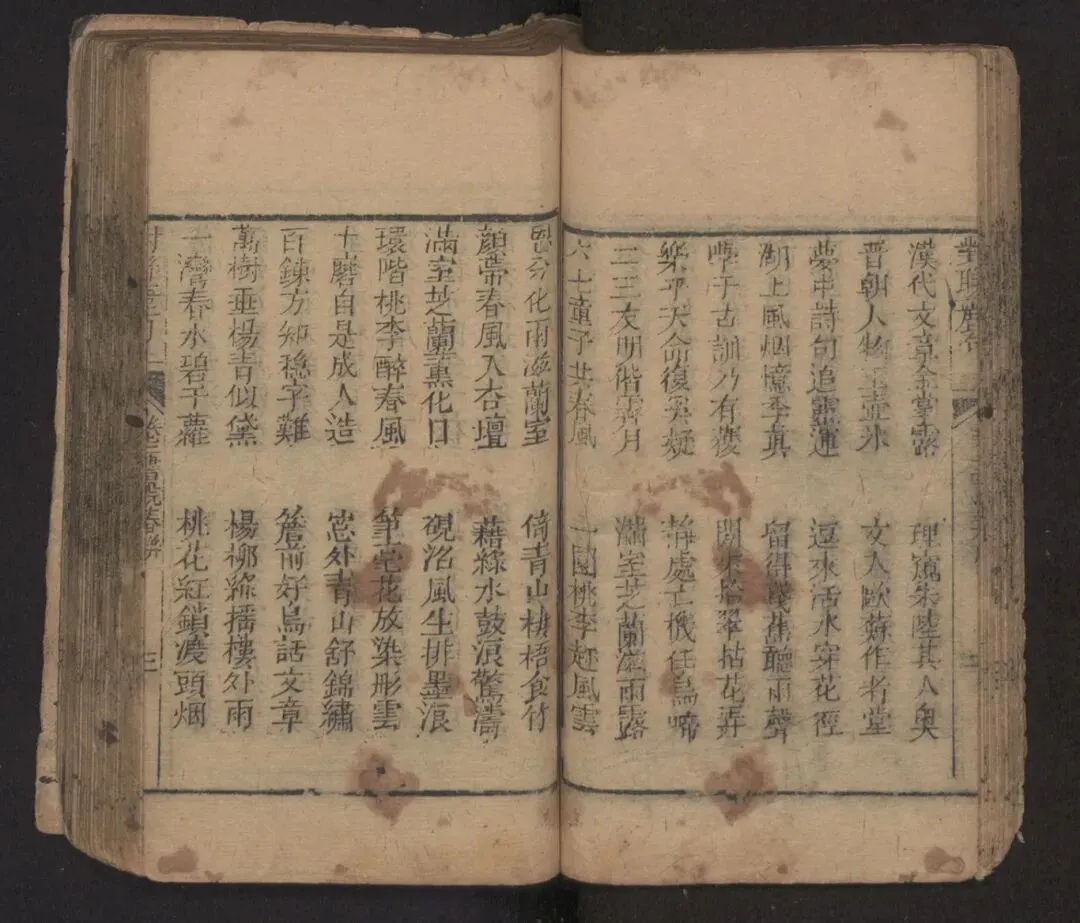 漢代文章金掌露
理窺朱陸其人奥
晋朝人物玉壺氷
文人歐蘇作者堂
夢中詩句追靈運
逗來活水穿花徑
湖上風烟憶季真
留得殘蕉聽雨聲
學于古訓乃有獲
閑來 翠拈花弄
樂乎天命復奚疑
靜處忘機任鳥啼
二三友明偕弄月
滿室芝蘭 雨露
六七童子共春風
一園桃李趂風雲
恩分化雨滋蘭室
倚青山棲梧食竹
顔帶春風入杏壇
藉綠水鼓浪驚濤
滿室芝蘭薰化日
硯沼風生排墨浪
環階桃李醉春風
筆 花放染彤雲
十磨自是成人造
窓外青山舒錦繡
百鍊方知穩字難
簷前好鳥話文章
萬樹垂楊青似黛
楊栁綠播樓外雨
一灣春水碧于蘿
桃花紅鎖渡頭烟
卷 書院春聯
三